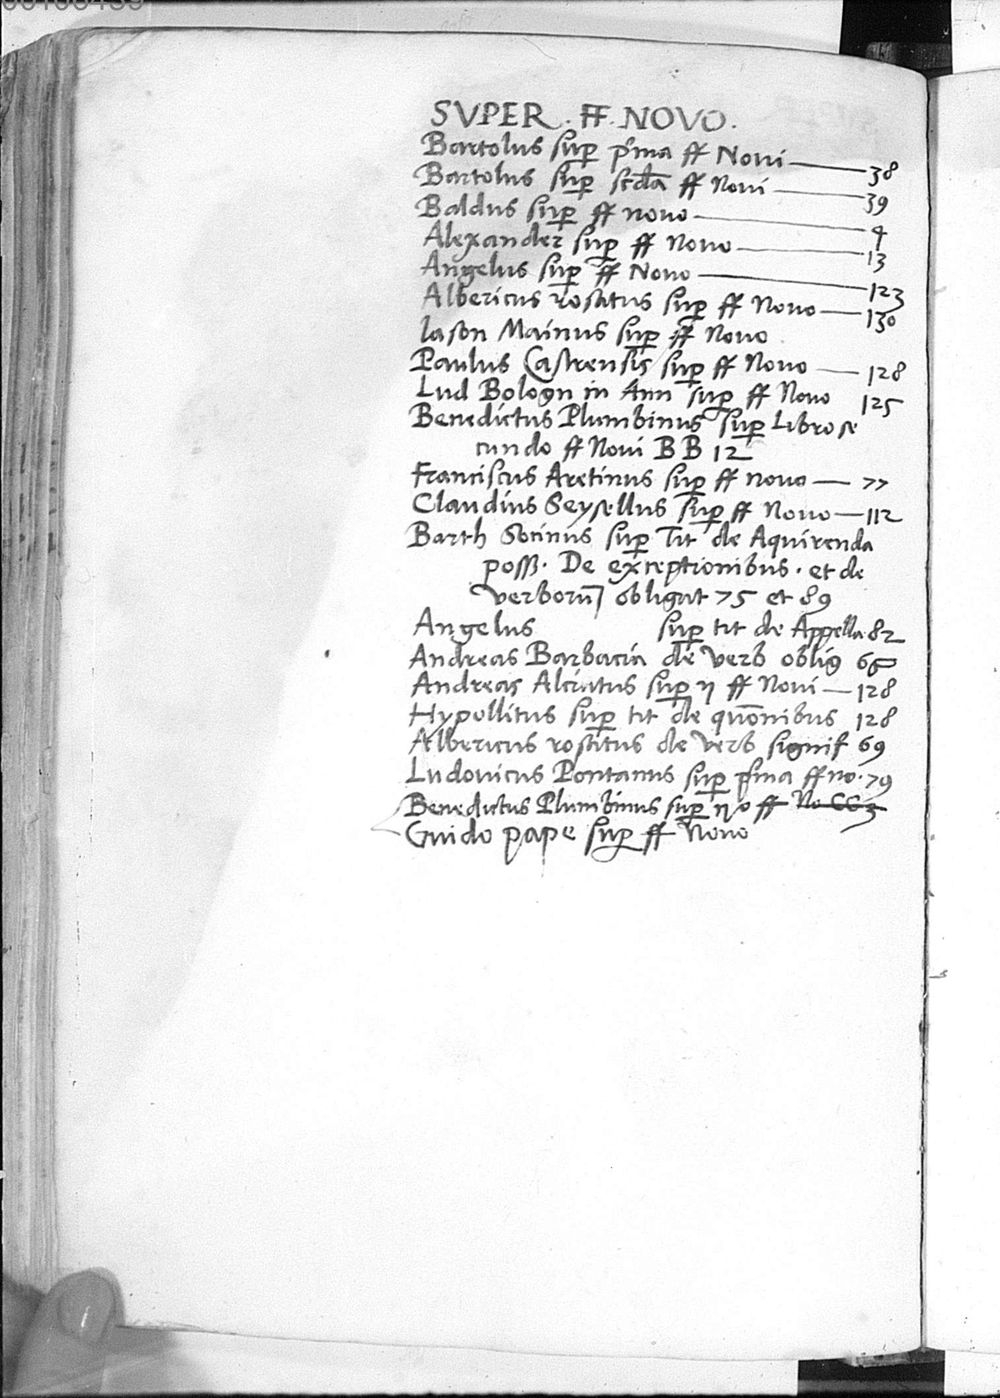 SVPER . FF . NOVO .
Bartolus sup p'ma ff Noui 38
Bartolus sup scda ff Noui 39
Baldus sup ff nouo 4
Alexander sup ff Nouo 13
Angelus sup ff Nouo 123
Albericus rosatus sup ff Nouo 130
Iason Mainus sup ff Nouo
Paulus Castrensis sup ff Nouo 128
Lud Bologn in Ann sup ff Nouo 125
Benedictus Plumbinus sup Libro se
cundo ff Noui BB 12
Franciscus Aretinus sup ff nouo 77
Claudius Seysellus sup ff Nouo 112
Barth Socinus sup Tit de Aquirenda
poss. De exceptionibus . et de
verborum obligat 75 et 89
Angelus sup tit de Appella. 82
Andreas Barbacia de verb oblig 66
Andreas Alciatus sup ff Noui 128
Hypollitus sup tit de quonibus 128
Albericus rosatus de verb signif 69
Ludouicus Pontanus sup p'ma ff no. 79
Benedictus Plumbinus sup ff No
Guido pape sup ff Nouo